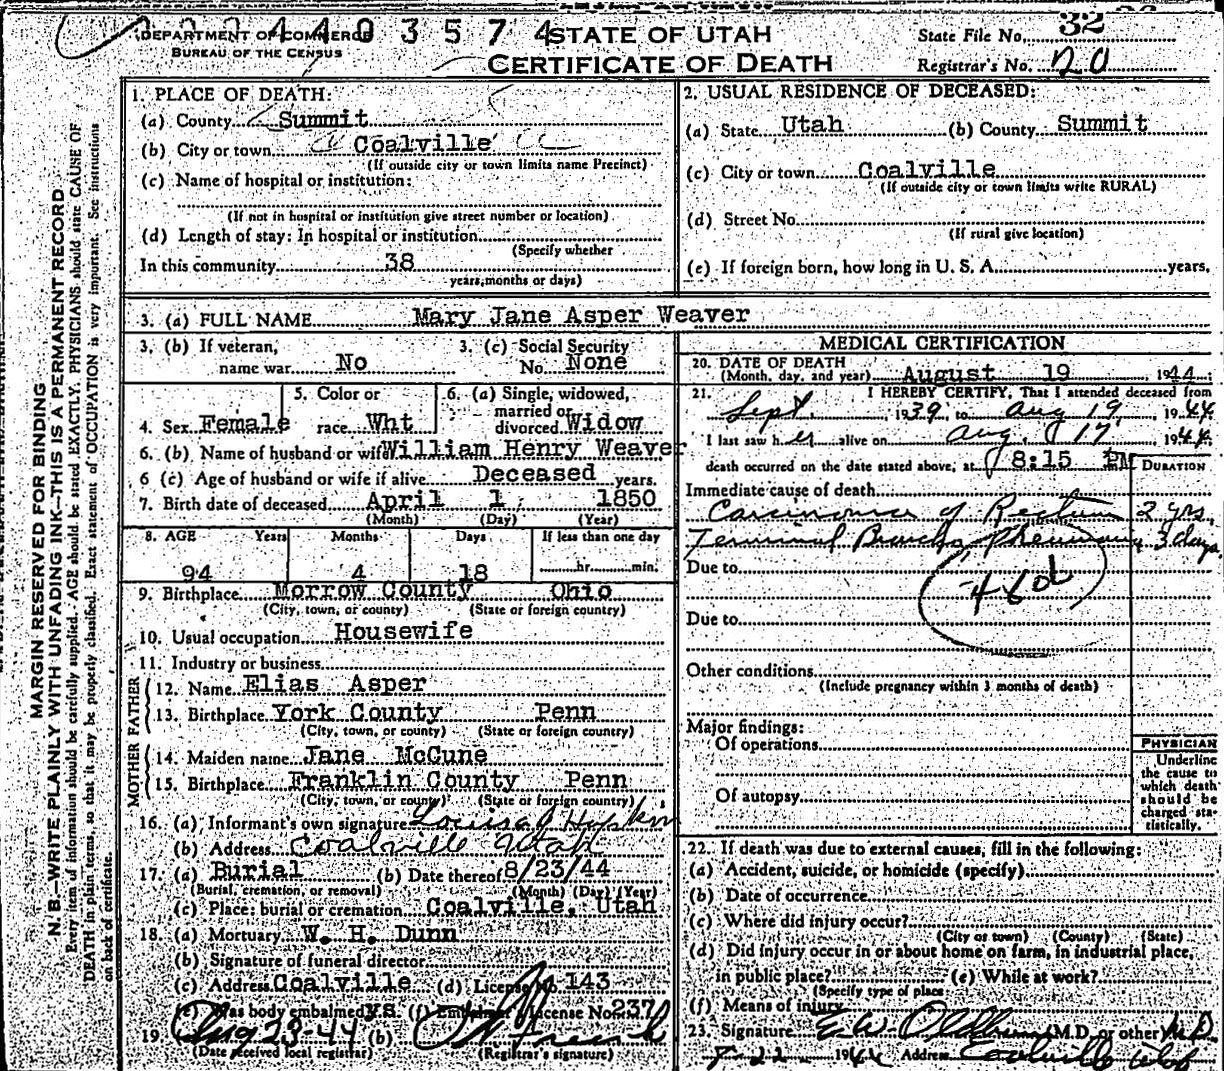 DEPARTMENT OF COMMERCE
BUREAU OF THE CENSUS
4 4 0 3 5 7 4
STATE OF UTAH
CERTIFICATE OF DEATH
State File No. 32
Registrar's No. 20
MARGIN RESERVED FOR BINDING
N. B.—WRITE PLAINLY WITH UNFADING INK—THIS IS A PERMANENT RECORD
Every item of information should be carefully supplied. AGE should be stated EXACTLY. PHYSICIANS should state CAUSE OF
DEATH in plain terms, so that it may be properly classified. Exact statement of OCCUPATION is very important. See instructions
on back of certificate.
1. PLACE OF DEATH:
(a) County Summit
(b) City or town Coalville
(If outside city or town limits name Precinct)
(c) Name of hospital or institution:
(If not in hospital or institution give street number or location)
(d) Length of stay: In hospital or institution
(Specify whether
In this community 38
years, months or days)
2. USUAL RESIDENCE OF DECEASED:
(a) State Utah (b) County Summit
(c) City or town Coalville
(If outside city or town limits write RURAL)
(d) Street No.
(If rural give location)
(e) If foreign born, how long in U. S. A. years.
3. (a) FULL NAME Mary Jane Asper Weaver
3. (b) If veteran,
name war No
3. (c) Social Security
No. None
4. Sex Female
5. Color or
race Wht
6. (a) Single, widowed,
married or
divorced Widow
6. (b) Name of husband or wife William Henry Weaver
6 (c) Age of husband or wife if alive Deceased years.
7. Birth date of deceased April 1, 1850
(Month) (Day) (Year)
8. AGE Years Months Days If less than one day
94 4 18 hr. min.
9. Birthplace Morrow County Ohio
(City, town, or county) (State or foreign country)
10. Usual occupation Housewife
11. Industry or business
FATHER
12. Name Elias Asper
13. Birthplace York County Penn
(City, town, or county) (State or foreign country)
MOTHER
14. Maiden name Jane McCune
15. Birthplace Franklin County Penn
(City, town, or county) (State or foreign country)
16. (a) Informant's own signature Louisa J Hopkins
(b) Address Coalville Utah
17. (a) Burial (b) Date thereof 8/23/44
(Burial, cremation, or removal) (Month) (Day) (Year)
(c) Place: burial or cremation Coalville, Utah
18. (a) Mortuary W. H. Dunn
(b) Signature of funeral director
(c) Address Coalville (d) License No. 143
(e) Was body embalmed YS. (f) Embalmer License No. 237
19. Aug 23-44 (b)
(Date received local registrar) (Registrar's signature)
MEDICAL CERTIFICATION
20. DATE OF DEATH
(Month, day, and year) August 19, 1944
21. I HEREBY CERTIFY, That I attended deceased from
Sept. 1939, to Aug 19, 1944
I last saw her alive on Aug. 17, 1944.
death occurred on the date stated above, at 8:15 PM
DURATION
Immediate cause of death
Carcinoma of Rectum 2 yrs.
Terminal Broncho Pneumonia 3 days
Due to
46d
Due to
Other conditions
(Include pregnancy within 3 months of death)
Major findings:
Of operations
Of autopsy
PHYSICIAN
Underline
the cause to
which death
should be
charged sta-
tistically.
22. If death was due to external causes, fill in the following:
(a) Accident, suicide, or homicide (specify)
(b) Date of occurrence
(c) Where did injury occur?
(City or town) (County) (State)
(d) Did injury occur in or about home on farm, in industrial place,
in public place? (e) While at work?
(Specify type of place)
(f) Means of injury
23. Signature E.W. Oldham (M.D. or other) M.D.
8-22 1944 Address Coalville Utah